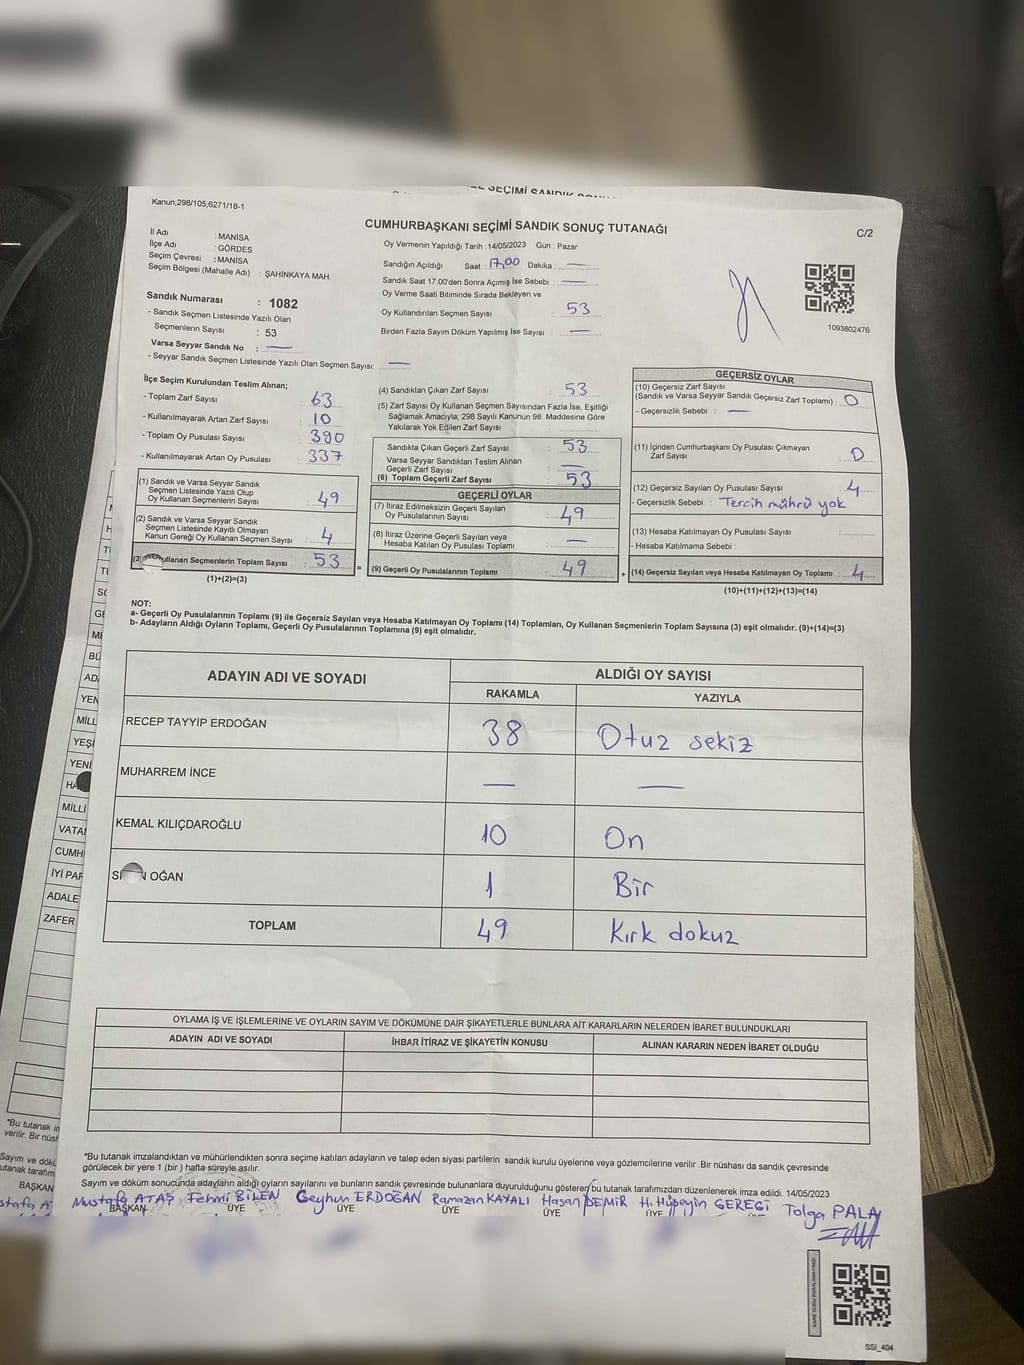 Kanun;298/105;6271/18-1
CUMHURBAŞKANI SEÇİMİ SANDIK SONUÇ TUTANAĞI
C/2
İl Adı : MANİSA
İlçe Adı : GÖRDES
Seçim Çevresi : MANİSA
Seçim Bölgesi (Mahalle Adı) : ŞAHİNKAYA MAH.
Oy Vermenin Yapıldığı Tarih : 14/05/2023 Gün : Pazar
Sandığın Açıldığı Saat : 17,00 Dakika : —
Sandık Saat 17:00'den Sonra Açımış İse Sebebi : —
Oy Verme Saati Bitiminde Sırada Bekleyen ve
Oy Kullandırılan Seçmen Sayısı : 53
Birden Fazla Sayım Döküm Yapılmış İse Sayısı : —
1093802476
Sandık Numarası : 1082
- Sandık Seçmen Listesinde Yazılı Olan
Seçmenlerin Sayısı : 53
Varsa Seyyar Sandık No : —
- Seyyar Sandık Seçmen Listesinde Yazılı Olan Seçmen Sayısı: —
İlçe Seçim Kurulundan Teslim Alınan;
- Toplam Zarf Sayısı : 63
- Kullanılmayarak Artan Zarf Sayısı : 10
- Toplam Oy Pusulası Sayısı : 390
- Kullanılmayarak Artan Oy Pusulası : 337
(1) Sandık ve Varsa Seyyar Sandık
Seçmen Listesinde Yazılı Olup
Oy Kullanan Seçmenlerin Sayısı : 49
(2) Sandık ve Varsa Seyyar Sandık
Seçmen Listesinde Kayıtlı Olmayan
Kanun Gereği Oy Kullanan Seçmen Sayısı : 4
(3) Kullanan Seçmenlerin Toplam Sayısı : 53
(1)+(2)=(3)
(4) Sandıktan Çıkan Zarf Sayısı : 53
(5) Zarf Sayısı Oy Kullanan Seçmen Sayısından Fazla İse, Eşitliği
Sağlamak Amacıyla; 298 Sayılı Kanunun 98. Maddesine Göre
Yakılarak Yok Edilen Zarf Sayısı :
Sandıkta Çıkan Geçerli Zarf Sayısı : 53
Varsa Seyyar Sandıktan Teslim Alınan
Geçerli Zarf Sayısı : —
(6) Toplam Geçerli Zarf Sayısı : 53
GEÇERLİ OYLAR
(7) İtiraz Edilmeksizin Geçerli Sayılan
Oy Pusulalarının Sayısı : 49
(8) İtiraz Üzerine Geçerli Sayılan veya
Hesaba Katılan Oy Pusulası Toplamı : —
= (9) Geçerli Oy Pusulalarının Toplamı : 49
GEÇERSİZ OYLAR
(10) Geçersiz Zarf Sayısı
(Sandık ve Varsa Seyyar Sandık Geçersiz Zarf Toplamı) : 0
- Geçersizlik Sebebi : —
(11) İçinden Cumhurbaşkanı Oy Pusulası Çıkmayan
Zarf Sayısı : 0
(12) Geçersiz Sayılan Oy Pusulası Sayısı : 4
- Geçersizlik Sebebi : Tercih mührü yok
(13) Hesaba Katılmayan Oy Pusulası Sayısı :
- Hesaba Katılmama Sebebi :
+ (14) Geçersiz Sayılan veya Hesaba Katılmayan Oy Toplamı : 4
(10)+(11)+(12)+(13)=(14)
NOT:
a- Geçerli Oy Pusulalarının Toplamı (9) ile Geçersiz Sayılan veya Hesaba Katılmayan Oy Toplamı (14) Toplamları, Oy Kullanan Seçmenlerin Toplam Sayısına (3) eşit olmalıdır. (9)+(14)=(3)
b- Adayların Aldığı Oyların Toplamı, Geçerli Oy Pusulalarının Toplamına (9) eşit olmalıdır.
ADAYIN ADI VE SOYADI ALDIĞI OY SAYISI
RAKAMLA YAZIYLA
RECEP TAYYIP ERDOĞAN 38 Otuz sekiz
MUHARREM İNCE — —
KEMAL KILIÇDAROĞLU 10 On
OĞAN 1 Bir
TOPLAM 49 Kırk dokuz
OYLAMA İŞ VE İŞLEMLERİNE VE OYLARIN SAYIM VE DÖKÜMÜNE DAİR ŞİKAYETLERLE BUNLARA AİT KARARLARIN NELERDEN İBARET BULUNDUKLARI
ADAYIN ADI VE SOYADI İHBAR İTİRAZ VE ŞİKAYETİN KONUSU ALINAN KARARIN NEDEN İBARET OLDUĞU
*Bu tutanak imzalandıktan ve mühürlendikten sonra seçime katılan adayların ve talep eden siyasi partilerin sandık kurulu üyelerine veya gözlemcilerine verilir .Bir nüshası da sandık çevresinde
görülecek bir yere 1 (bir ) hafta süreyle asılır.
Sayım ve döküm sonucunda adayların aldığı oyların sayılarını ve bunların sandık çevresinde bulunanlara duyurulduğunu gösteren bu tutanak tarafımızdan düzenlenerek imza edildi. 14/05/2023
Mustafa ATAŞ Fehmi BİLEN Ceyhun ERDOĞAN Ramazan KAYALI Hasan DEMİR H. Hüseyin GEREGİ Tolga PALA
BAŞKAN ÜYE ÜYE ÜYE ÜYE ÜYE
SSI_404